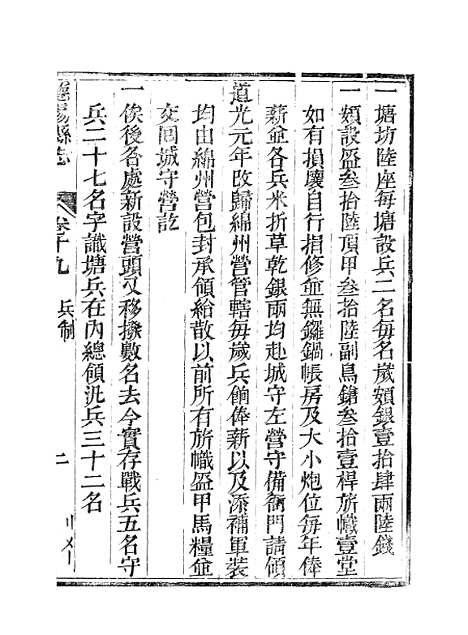 一塘坊陸座每塘設兵二名每名歲領銀壹拾肆兩陸錢
一額設盔叁拾陸頂甲叁拾陸副鳥鎗叁拾壹桿旂幟壹堂
如有損壞自行捐修並無鑼鍋帳房及大小炮位每年俸
薪並各兵米折草乾銀兩均赴城守左營守備衙門請領
道光元年改歸綿州營管轄每歲兵餉俸薪以及添補軍裝
均由綿州營包封承領給散以前所有旂幟盔甲馬糧並
交囘城守營訖
一俟後各處新設營頭又移撥數名去今實存戰兵五名守
兵二十七名字識塘兵在內總領汛兵三十二名
縣志
卷十九
兵制
二